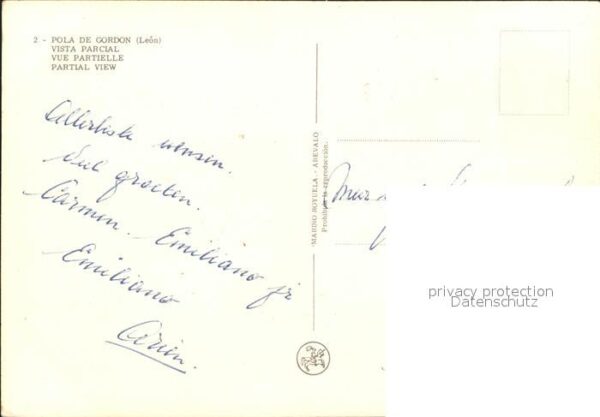 2 - POLA DE GORDON (León)
VISTA PARCIAL
VUE PARTIELLE
PARTIAL VIEW
Allerbeste wensen.
groeten.
Carmen. Emiliano jr
Emiliano
MARINO ROYUELA - AREVALO
Prohibida la reproducción.
privacy protection
Datenschutz